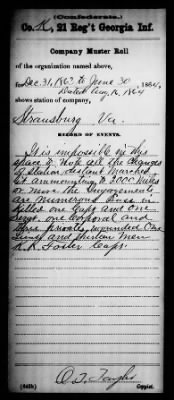 (Confederate.)
Co. K, 21 Reg't Georgia Inf.
Company Muster Roll
of the organization named above,
for Dec. 31, 1863 to June 30, 1864,
Dated Aug 16, 1864
shows station of company,
Strausburg Va.
RECORD OF EVENTS.
It is impossible in this
space to Note all the Changes
of Station, distant Marched
&c ammounting to 2000 Miles
or more the Engagements
are numerous Loss in
Killed one Capt and One
Sergt. one Corporal and
three privates, wounded One
Lieut and thirteen Men
Foster Capt
(645b)
Copyist.